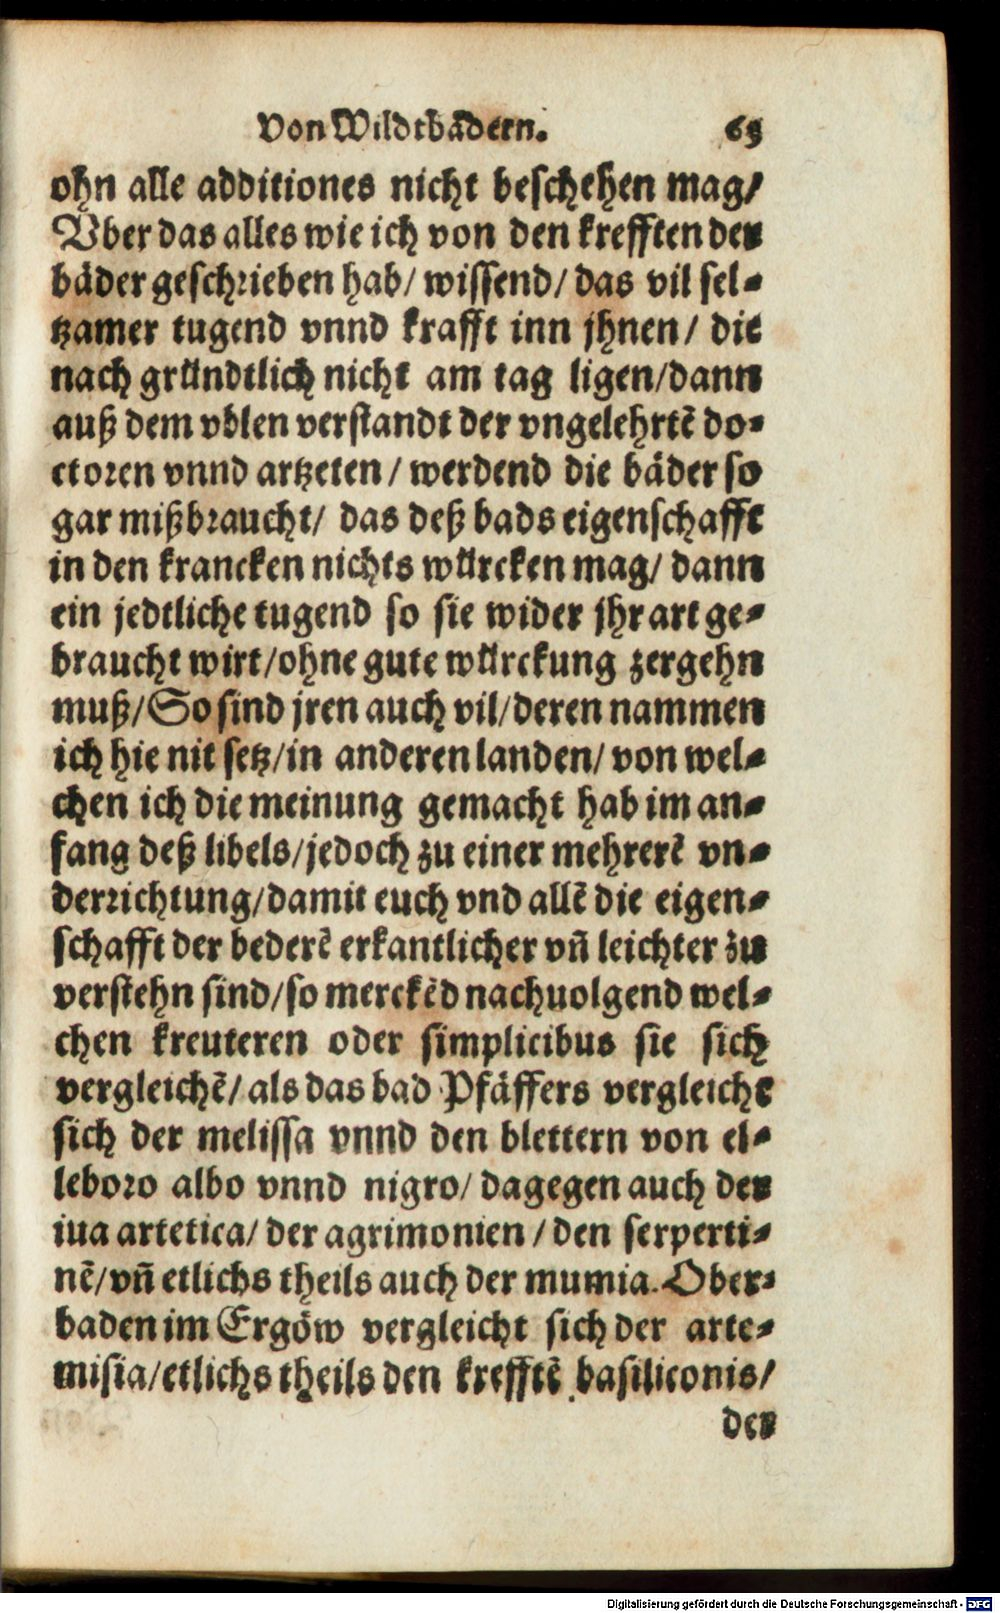 Von Wildtbädern. 63
ohn alle additiones nicht beschehen mag/
Vber das alles wie ich von den krefften der
bäder geschrieben hab/ wissend/ das vil sel-
tzamer tugend vnnd krafft inn jhnen/ die
nach gründtlich nicht am tag ligen/dann
auß dem vblen verstandt der vngelehrtē do-
ctoren vnnd artzeten/ werdend die bäder so
gar mißbraucht/ das deß bads eigenschafft
in den krancken nichts würcken mag/ dann
ein jedtliche tugend so sie wider jhr art ge-
braucht wirt/ohne gute würckung zergehn
muß/So sind jren auch vil/deren nammen
ich hie nit setz/in anderen landen/ von wel-
chen ich die meinung gemacht hab im an-
fang deß libels/jedoch zu einer mehrerē vn-
derrichtung/damit euch vnd allē die eigen-
schafft der bederē erkantlicher vñ leichter zu
verstehn sind/so merckēd nachuolgend wel-
chen kreuteren oder simplicibus sie sich
vergleichē/ als das bad Pfäffers vergleicht
sich der melissa vnnd den blettern von el-
leboro albo vnnd nigro/ dagegen auch der
iua artetica/ der agrimonien/den serperti-
nē/vñ etlichs theils auch der mumia. Ober-
baden im Ergöw vergleicht sich der arte-
misia/etlichs theils den krefftē basiliconis/
der
Digitalisierung gefördert durch die Deutsche Forschungsgemeinschaft - DFG